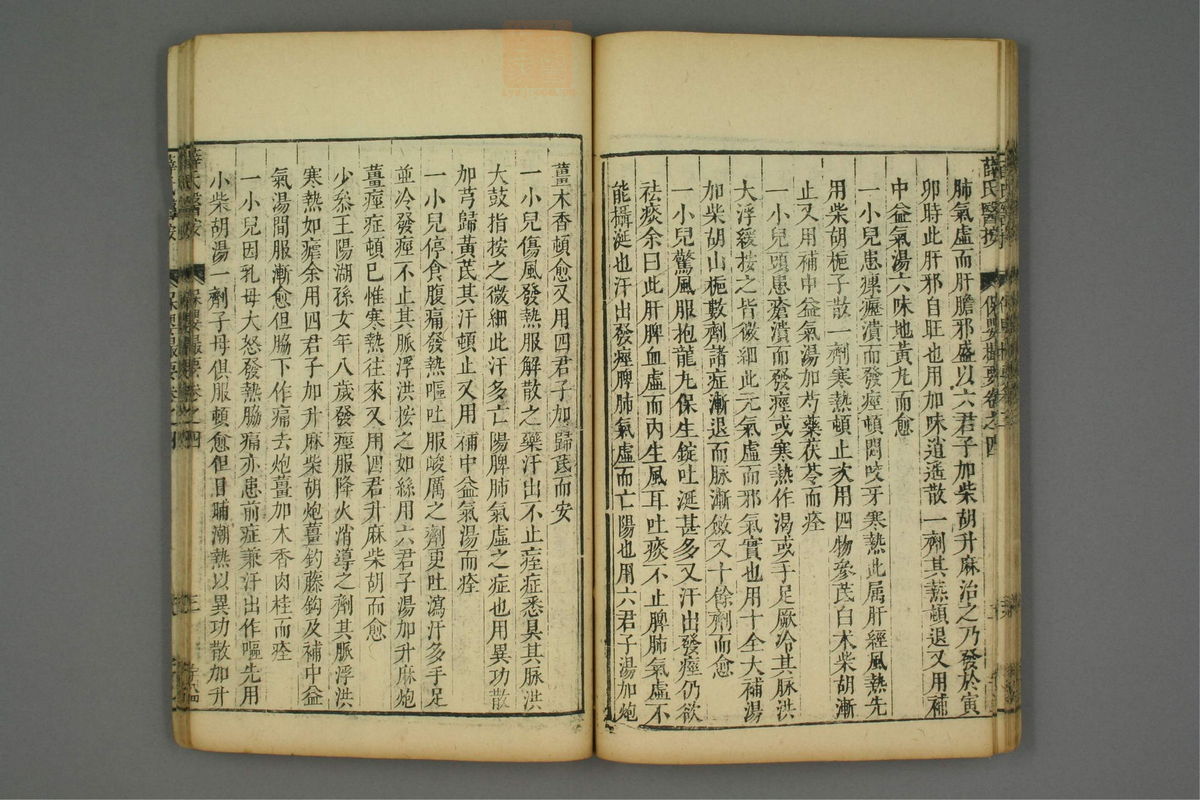 薛氏醫按 保嬰撮要卷之四
肺氣虛而肝膽邪盛以六君子加柴胡升麻治之乃發於寅
卯時此肝邪自旺也用加味逍遥散一劑其熱頓退又用補
中益氣湯六味地黃丸而愈
一小兒患瘰癧潰而發痙頓悶咬牙寒熱此属肝經風熱先
用柴胡梔子散一劑寒熱頓止次用四物參芪白术柴胡漸
止又用補中益氣湯加芍藥茯苓而痊
一小兒頭患瘡潰而發痙或寒熱作渴或手足厥冷其脉洪
大浮緩按之皆微細此元氣虛而邪氣實也用十全大補湯
加柴胡山梔數劑諸症漸退而脉漸斂又十餘劑而愈
一小兒驚風服抱龍丸保生錠吐涎甚多又汗出發痙仍欲
祛痰余曰此肝脾血虛而内生風耳吐痰不止脾肺氣虛不
能攝涎也汗出發痙脾肺氣虛而亡陽也用六君子湯加炮
薑木香頓愈又用四君子加歸芪而安
一小兒傷風發熱服解散之藥汗出不止痙症悉具其脉洪
大鼓指按之微細此汗多亡陽脾肺氣虛之症也用異功散
加芎歸黃芪其汗頓止又用補中益氣湯而痊
一小兒停食腹痛發熱嘔吐服峻厲之劑更吐瀉汗多手足
並冷發痙不止其脈浮洪按之如絲用六君子湯加升麻炮
薑痙症頓已惟寒熱往來又用四君升麻柴胡而愈
少叅王陽湖孫女年八歲發痙服降火消導之劑其脈浮洪
寒熱如瘧余用四君子加升麻柴胡炮薑釣藤鈎及補中益
氣湯間服漸愈但脇下作痛去炮薑加木香肉桂而痊
一小兒因乳母大怒發熱脇痛亦患前症兼汗出作嘔先用
小柴胡湯一劑子母俱服頓愈但日晡潮熱以異功散加升
薛氏醫按 保嬰撮要卷之四